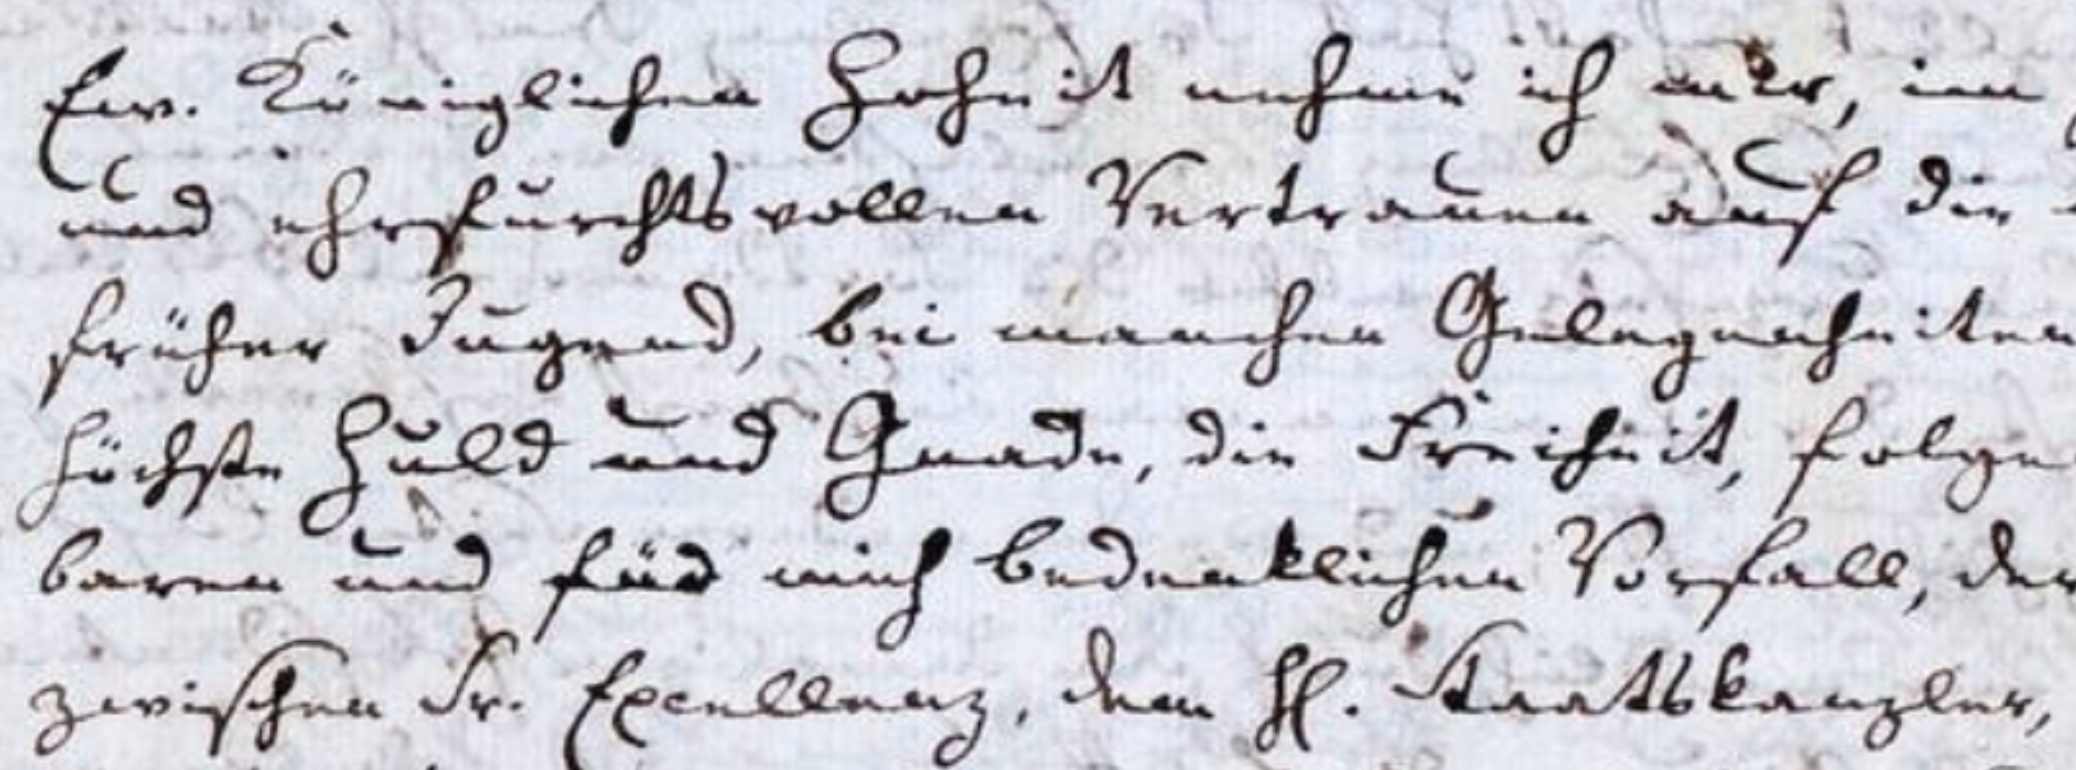 Ew. Königlichen Hoheit nehme ich mir, im
und ehrfurchtsvollen Vertrauen auf die
früher Jugend, bei manchen Gelegenheiten
höchste Huld und Gnade, die Freiheit, folge
baren und für mich bedenklichen Vorfall, der
zwischen Sr. Excellenz, dem H. Staatskanzler,